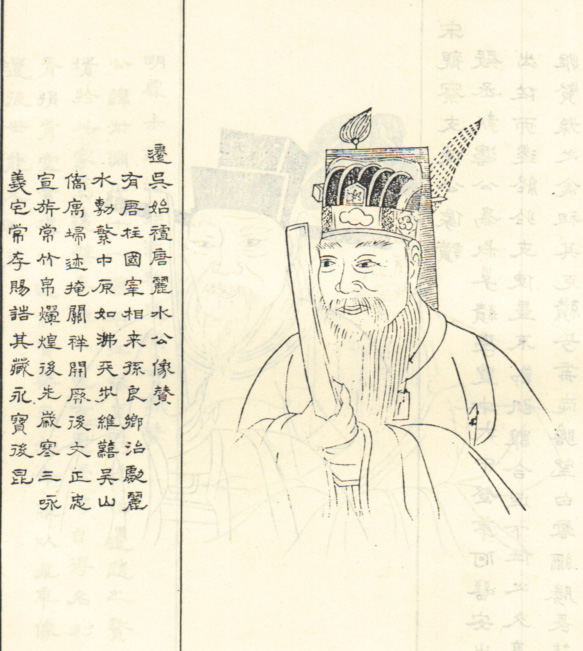 遷吳始祖唐麗水公像贊
有唐柱國宰相来孫良鄉治麗
水繁中原如沸天步維囏吳山
僑寓埽迹掩關祥開厥後文正忠
宣旂常竹帛爛煌後先歲寒三咏
義宅常存賜誥其藏永寶後昆